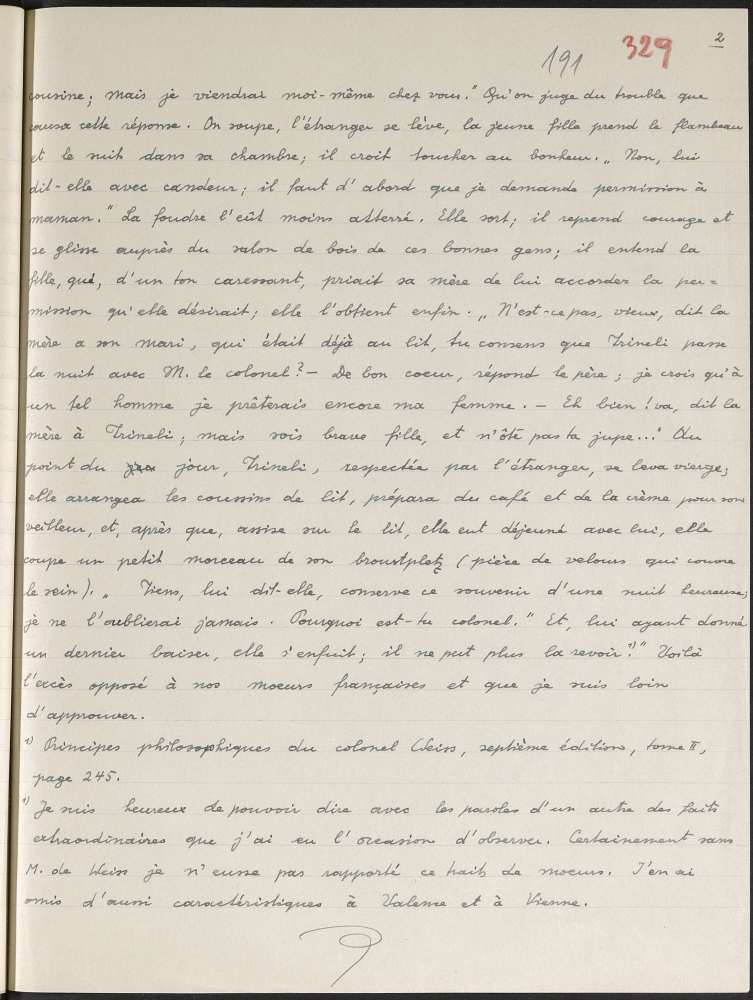 2
191 329
cousine; mais je viendrai moi-même chez vous." Qu'on juge du trouble que
causa cette réponse. On soupe, l'étranger se lève, la jeune fille prend le flambeau
et le suit dans sa chambre; il croit toucher au bonheur. „ Non, lui
dit-elle avec candeur; il faut d'abord que je demande permission à
maman." La foudre l'eût moins atterré. Elle sort; il reprend courage et
se glisse auprès du salon de bois de ces bonnes gens; il entend la
fille, qui, d'un ton caressant, priait sa mère de lui accorder la per=
mission qu'elle désirait; elle l'obtient enfin. „ N'est-ce pas, vieux, dit la
mère a son mari, qui était déjà au lit, tu consens que Trineli passe
la nuit avec M. le colonel? — De bon coeur, répond le père; je crois qu'à
un tel homme je prêterais encore ma femme. — Eh bien! va, dit la
mère à Trineli; mais sois brave fille, et n'ôte pas ta jupe..." Au
point du jour, Trineli, respectée par l'étranger, se leva vierge;
elle arrangea les coussins de lit, prépara du café et de la crème pour son
veilleur, et, après que, assise sur le lit, elle eut déjeuné avec lui, elle
coupe un petit morceau de son broustpletz (pièce de velours qui couvre
le sein). „ Tiens, lui dit-elle, conserve ce souvenir d'une nuit heureuse;
je ne l'oublierai jamais. Pourquoi est-tu colonel." Et, lui ayant donné
un dernier baiser, elle s'enfuit; il ne put plus la revoir.¹)" Voilà
l'excès opposé à nos moeurs françaises et que je suis loin
d'approuver.
¹) Principes philosophiques du colonel Weiss, septième édition, tome II,
page 245.
¹) Je suis heureux de pouvoir dire avec les paroles d'un autre des faits
extraordinaires que j'ai eu l'occasion d'observer. Certainement sans
M. de Weiss je n'eusse pas rapporté ce trait de moeurs. J'en ai
omis d'aussi caractéristiques à Valence et à Vienne.